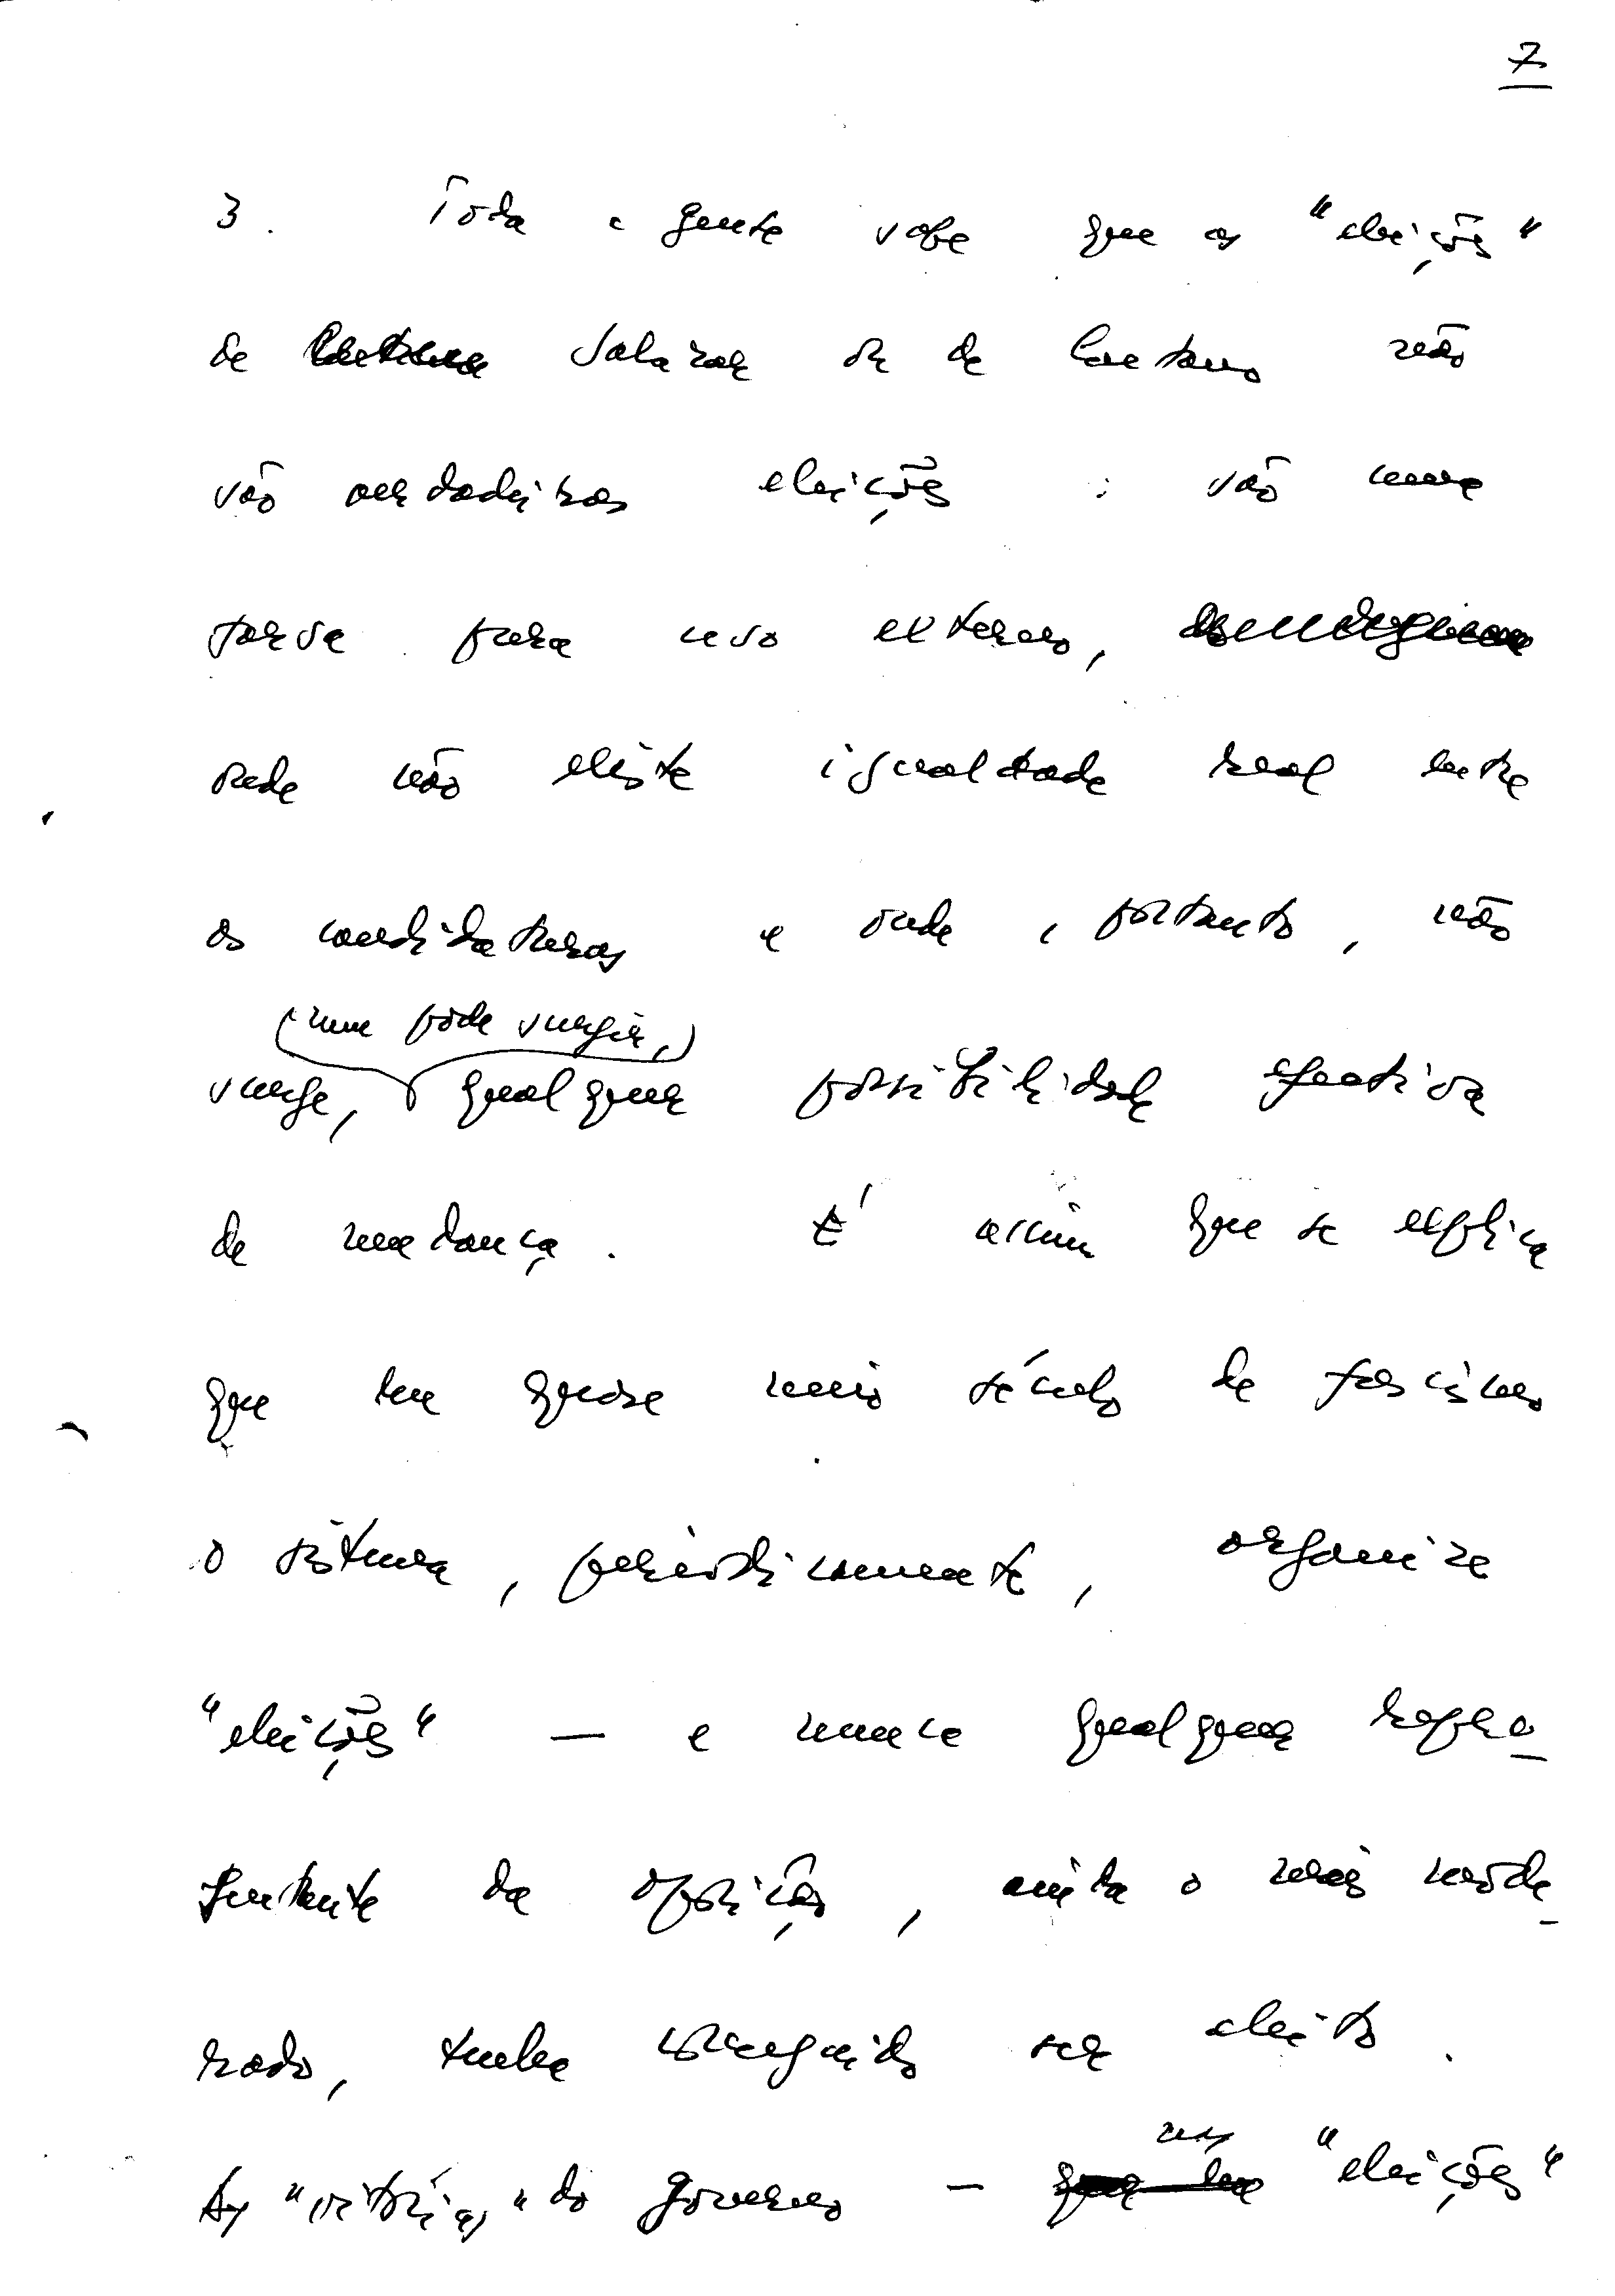 7
3. Toda a gente sabe que as "eleições"
de Caetano Salazar ou de Caetano não
são verdadeiras eleições : são uma
farsa para uso externo,
onde não existe igualdade real entre
as candidaturas e onde, portanto, não
(nem pode surgir,)
surge, qualquer possibilidade efectiva
de mudança. É assim que se explica
que em quase meio século de fascismo
o sistema, periòdicamente, organize
"eleições" — e nunca qualquer repre-
sentante da oposição, ainda o mais mode-
rado, tenha conseguido ser eleito.
nas
As "vitórias" do governo — "eleições"